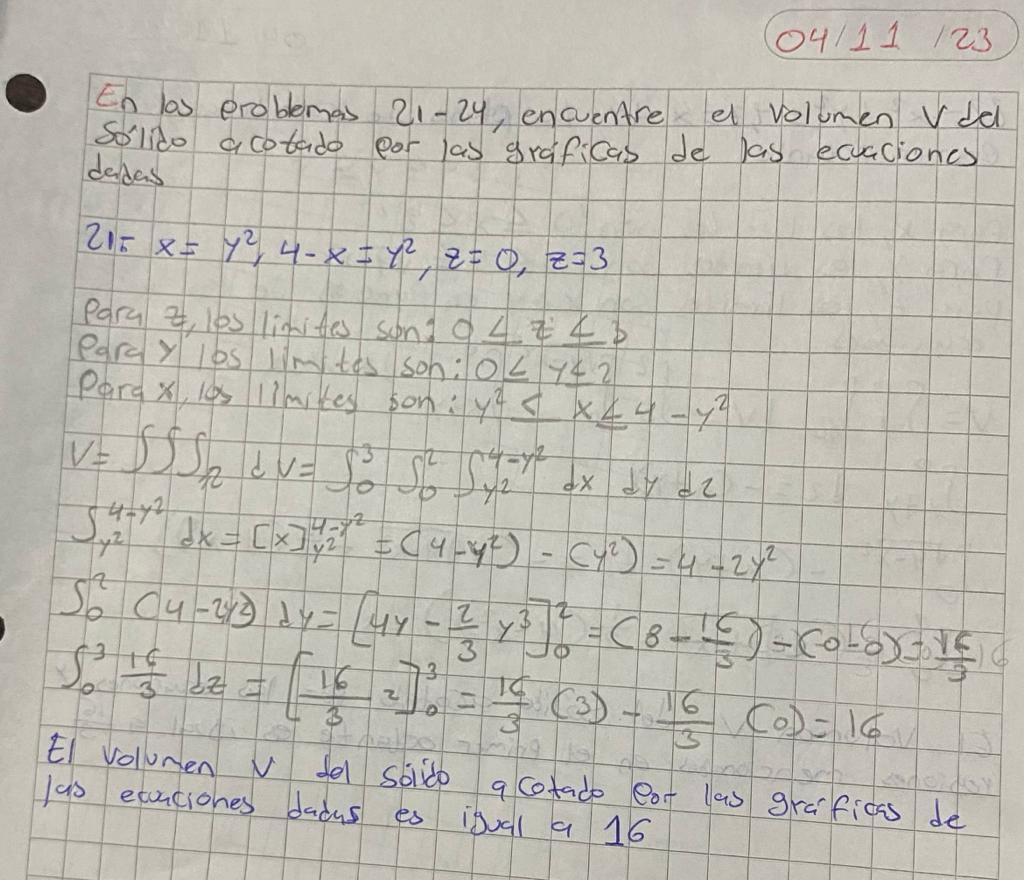 04/11/23
En los problemas 21-24, encuentre el volumen V del
sólido acotado por las gráficas de las ecuaciones
dadas
21= x = y², 4-x = y², z=0, z=3
Para z, los limites son: 0 ≤ z ≤ 3
Para y los límites son: 0 ≤ y ≤ 2
Para x, los límites son: y² ≤ x ≤ 4-y²
V = ∫∫∫_R dV = ∫₀³ ∫₀² ∫_{y²}^{4-y²} dx dy dz
∫_{y²}^{4-y²} dx = [x]_{y²}^{4-y²} = (4-y²) - (y²) = 4-2y²
∫₀² (4-2y²) dy = [4y - 2/3 y³]₀² = (8 - 16/3) - (0-0) = 16/3
∫₀³ 16/3 dz = [16/3 z]₀³ = 16/3 (3) - 16/3 (0) = 16
El volumen V del sólido acotado por las gráficas de
las ecuaciones dadas es igual a 16